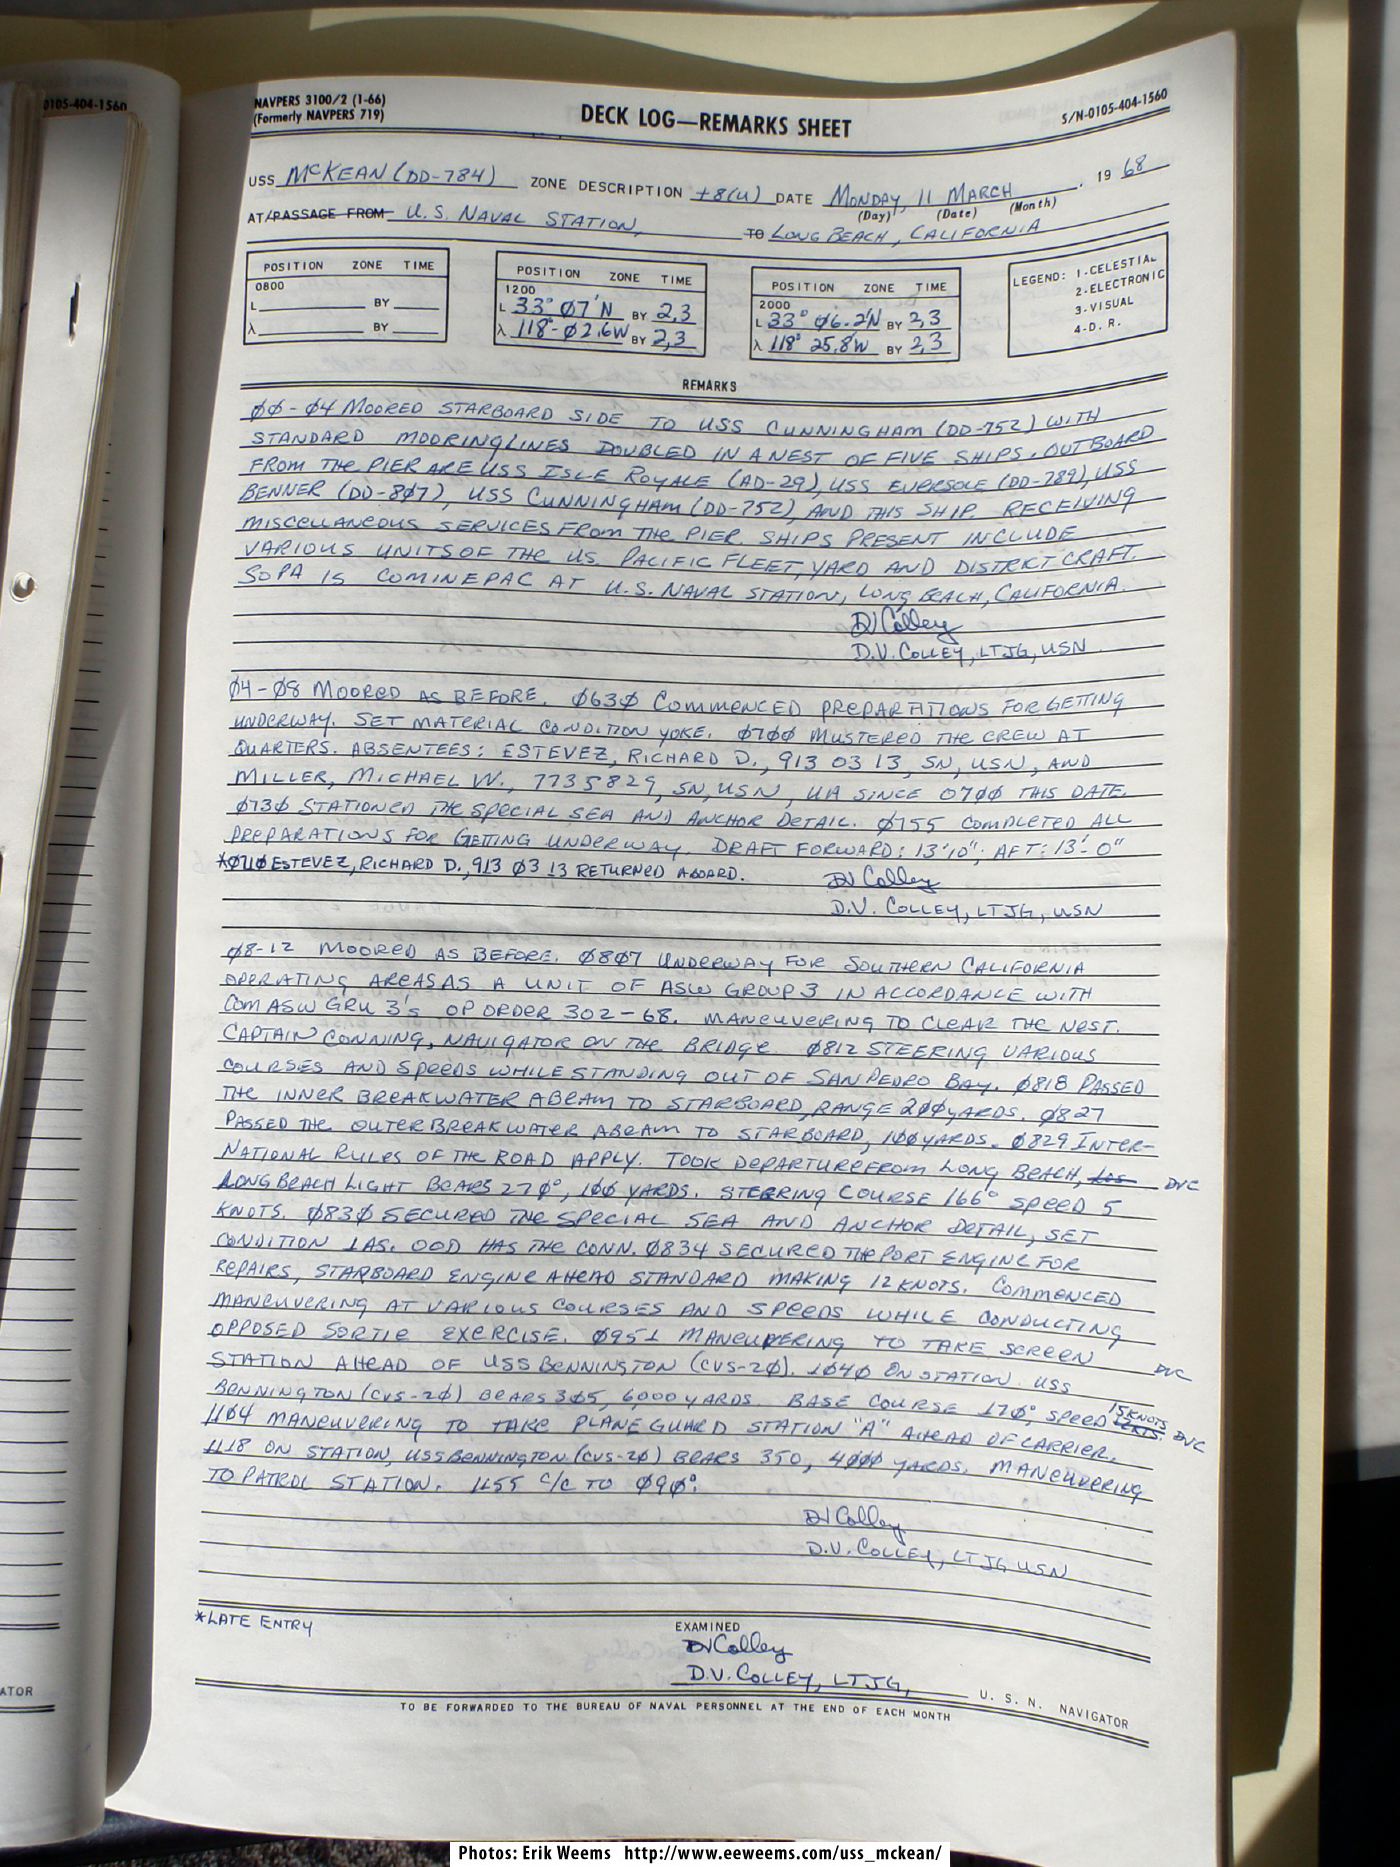 0105-404-1560
NAVPERS 3100/2 (1-66)
(Formerly NAVPERS 719)
DECK LOG—REMARKS SHEET
S/N-0105-404-1560
USS McKEAN (DD-784) ZONE DESCRIPTION +8(U) DATE MONDAY, 11 MARCH, 19 68
(Day) (Date) (Month)
AT/PASSAGE FROM U.S. NAVAL STATION, TO LONG BEACH, CALIFORNIA
POSITION ZONE TIME
0800
L BY
λ BY
POSITION ZONE TIME
1200
L 33° Ø7'N BY 2,3
λ 118°-Ø2.6W BY 2,3
POSITION ZONE TIME
2000
L 33° Ø6.2'N BY 2,3
λ 118° 25.8'W BY 2,3
LEGEND: 1-CELESTIAL
2-ELECTRONIC
3-VISUAL
4-D. R.
REMARKS
ØØ-Ø4 MOORED STARBOARD SIDE TO USS CUNNINGHAM (DD-752) WITH
STANDARD MOORINGLINES DOUBLED IN A NEST OF FIVE SHIPS. OUTBOARD
FROM THE PIER ARE USS ISLE ROYALE (AD-29), USS EVERSOLE (DD-789), USS
BENNER (DD-8Ø7), USS CUNNINGHAM (DD-752), AND THIS SHIP. RECEIVING
MISCELLANEOUS SERVICES FROM THE PIER. SHIPS PRESENT INCLUDE
VARIOUS UNITS OF THE U.S. PACIFIC FLEET, YARD AND DISTRICT CRAFT.
SOPA IS COMINEPAC AT U.S. NAVAL STATION, LONG BEACH, CALIFORNIA.
DV Colley
D.V. COLLEY, LTJG, USN
Ø4-Ø8 MOORED AS BEFORE. Ø63Ø COMMENCED PREPARATIONS FOR GETTING
UNDERWAY. SET MATERIAL CONDITION YOKE. Ø7ØØ MUSTERED THE CREW AT
QUARTERS. ABSENTEES: ESTEVEZ, RICHARD D., 913 03 13, SN, USN, AND
MILLER, MICHAEL W., 7735829, SN, USN, UA SINCE 07ØØ THIS DATE.
Ø73Ø STATIONED THE SPECIAL SEA AND ANCHOR DETAIL. Ø755 COMPLETED ALL
PREPARATIONS FOR GETTING UNDERWAY. DRAFT FORWARD: 13'10"; AFT: 13'-0"
*Ø71Ø ESTEVEZ, RICHARD D., 913 Ø3 13 RETURNED ABOARD.
DV Colley
D.V. COLLEY, LTJG, USN
Ø8-12 MOORED AS BEFORE. Ø8Ø7 UNDERWAY FOR SOUTHERN CALIFORNIA
OPERATING AREAS AS A UNIT OF ASW GROUP 3 IN ACCORDANCE WITH
COMASWGRU 3's OP ORDER 302-68. MANEUVERING TO CLEAR THE NEST.
CAPTAIN CONNING, NAVIGATOR ON THE BRIDGE. Ø812 STEERING VARIOUS
COURSES AND SPEEDS WHILE STANDING OUT OF SAN PEDRO BAY. Ø818 PASSED
THE INNER BREAKWATER ABEAM TO STARBOARD, RANGE 2ØØ YARDS. Ø827
PASSED THE OUTER BREAKWATER ABEAM TO STARBOARD, 1ØØ YARDS. Ø829 INTER-
NATIONAL RULES OF THE ROAD APPLY. TOOK DEPARTURE FROM LONG BEACH, Los DVC
LONG BEACH LIGHT BEARS 27Ø°, 1ØØ YARDS. STEERING COURSE 166° SPEED 5
KNOTS. Ø83Ø SECURED THE SPECIAL SEA AND ANCHOR DETAIL, SET
CONDITION 1AS. OOD HAS THE CONN. Ø834 SECURED THE PORT ENGINE FOR
REPAIRS, STARBOARD ENGINE AHEAD STANDARD MAKING 12 KNOTS. COMMENCED
MANEUVERING AT VARIOUS COURSES AND SPEEDS WHILE CONDUCTING
OPPOSED SORTIE EXERCISE. Ø951 MANEUVERING TO TAKE SCREEN
STATION AHEAD OF USS BENNINGTON (CVS-2Ø). 1Ø4Ø ON STATION. USS DVC
BENNINGTON (CVS-2Ø) BEARS 3Ø5, 6,000 YARDS. BASE COURSE 17Ø°, SPEED 15 KNOTS 12KTS. DVC
11Ø4 MANEUVERING TO TAKE PLANE GUARD STATION "A" AHEAD OF CARRIER.
1118 ON STATION, USS BENNINGTON (CVS-2Ø) BEARS 350, 4ØØØ YARDS. MANEUVERING
TO PATROL STATION. 1155 C/C TO Ø9Ø°.
DV Colley
D.V. COLLEY, LTJG USN
*LATE ENTRY
EXAMINED
DV Colley
D.V. COLLEY, LTJG, U. S. N. NAVIGATOR
TO BE FORWARDED TO THE BUREAU OF NAVAL PERSONNEL AT THE END OF EACH MONTH
ATOR
Photos: Erik Weems http://www.eeweems.com/uss_mckean/